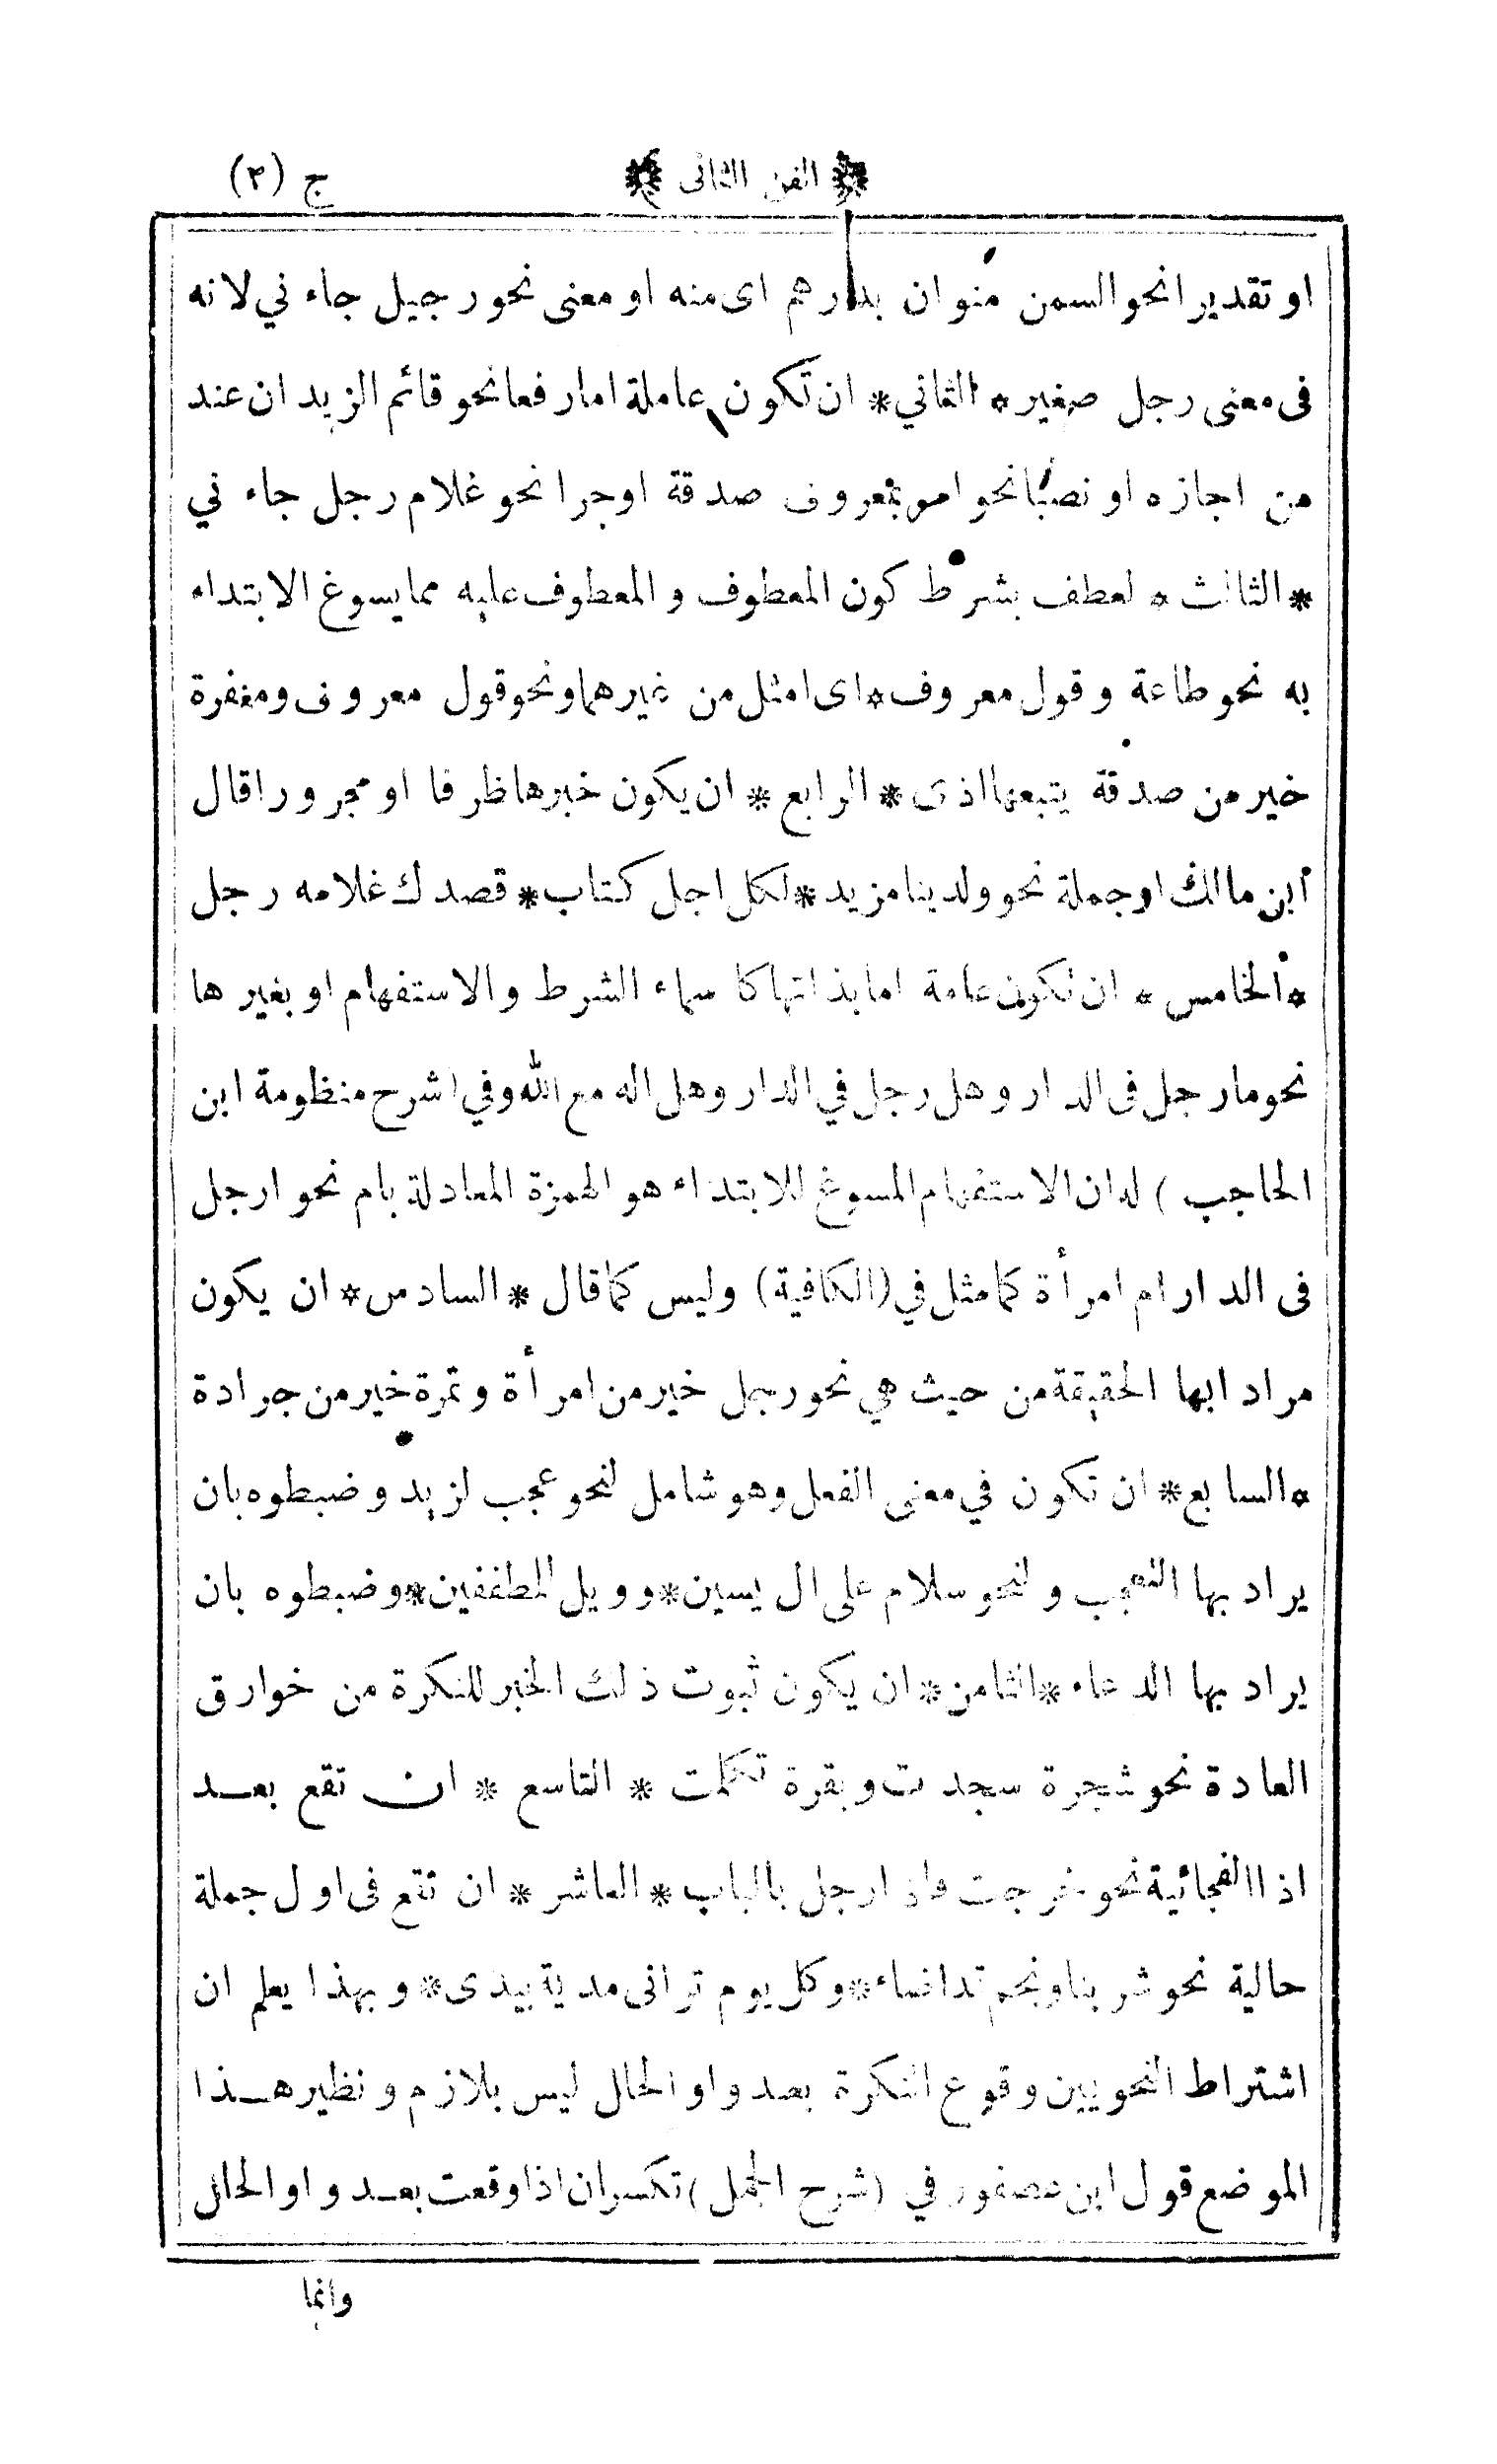 الفن الثانى ج (٢)
او تقديرا نحو السمن منوان بدرهم اى منه او معنى نحو رجيل جاء ني لانه
فى معنى رجل صغير * الثاني * ان تكون عاملة اما رفعا نحو قائم الزيدان عند
من اجازه او نصبا نحو امر بمعروف صدقة او جرا نحو غلام رجل جاء ني
* الثالث * لعطف بشرط كون المعطوف و المعطوف عليه مما يسوغ الابتداء
به نحو طاعة و قول معروف * اى امثل من غيرهما ونحو قول معروف ومغفرة
خير من صدقة يتبعها اذى * الرابع * ان يكون خبرها ظرفا او مجرورا قال
ابن مالك او جملة نحو ولدينا مزيد * لكل اجل كتاب * قصدك غلامه رجل
* الخامس * ان تكون عامة اما بذاتها كاسماء الشرط والاستفهام او بغيرها
نحو ما رجل فى الدار وهل رجل في الدار وهل اله مع الله وفي (شرح منظومة ابن
الحاجب ) له ان الاستفهام المسوغ للابتداء هو الهمزة المعادلة بام نحو ارجل
فى الدار ام امرأة كما مثل في (الكافية) وليس كما قال * السادس * ان يكون
مرادا بها الحقيقة من حيث هي نحو رجل خير من امرأة وتمرة خير من جرادة
* السابع * ان تكون في معنى الفعل وهو شامل لنحو عجب لزيد وضبطوه بان
يراد بها التعجب ولنحو سلام على ال يسين * وويل للمطففين * وضبطوه بان
يراد بها الدعاء * الثامن * ان يكون ثبوت ذلك الخبر للنكرة من خوارق
العادة نحو شجرة سجدت وبقرة تكلمت * التاسع * ان تقع بعد
اذا الفجائية نحو خرجت فاذا رجل بالباب * العاشر * ان تقع فى اول جملة
حالية نحو شربنا ونجم قد اضاء * وكل يوم ترانى مدية بيدى * وبهذا يعلم ان
اشتراط النحويين وقوع النكرة بعد واو الحال ليس بلازم ونظير هذا
الموضع قول ابن عصفور في (شرح الجمل) تكسر ان اذا وقعت بعد واو الحال
وانما